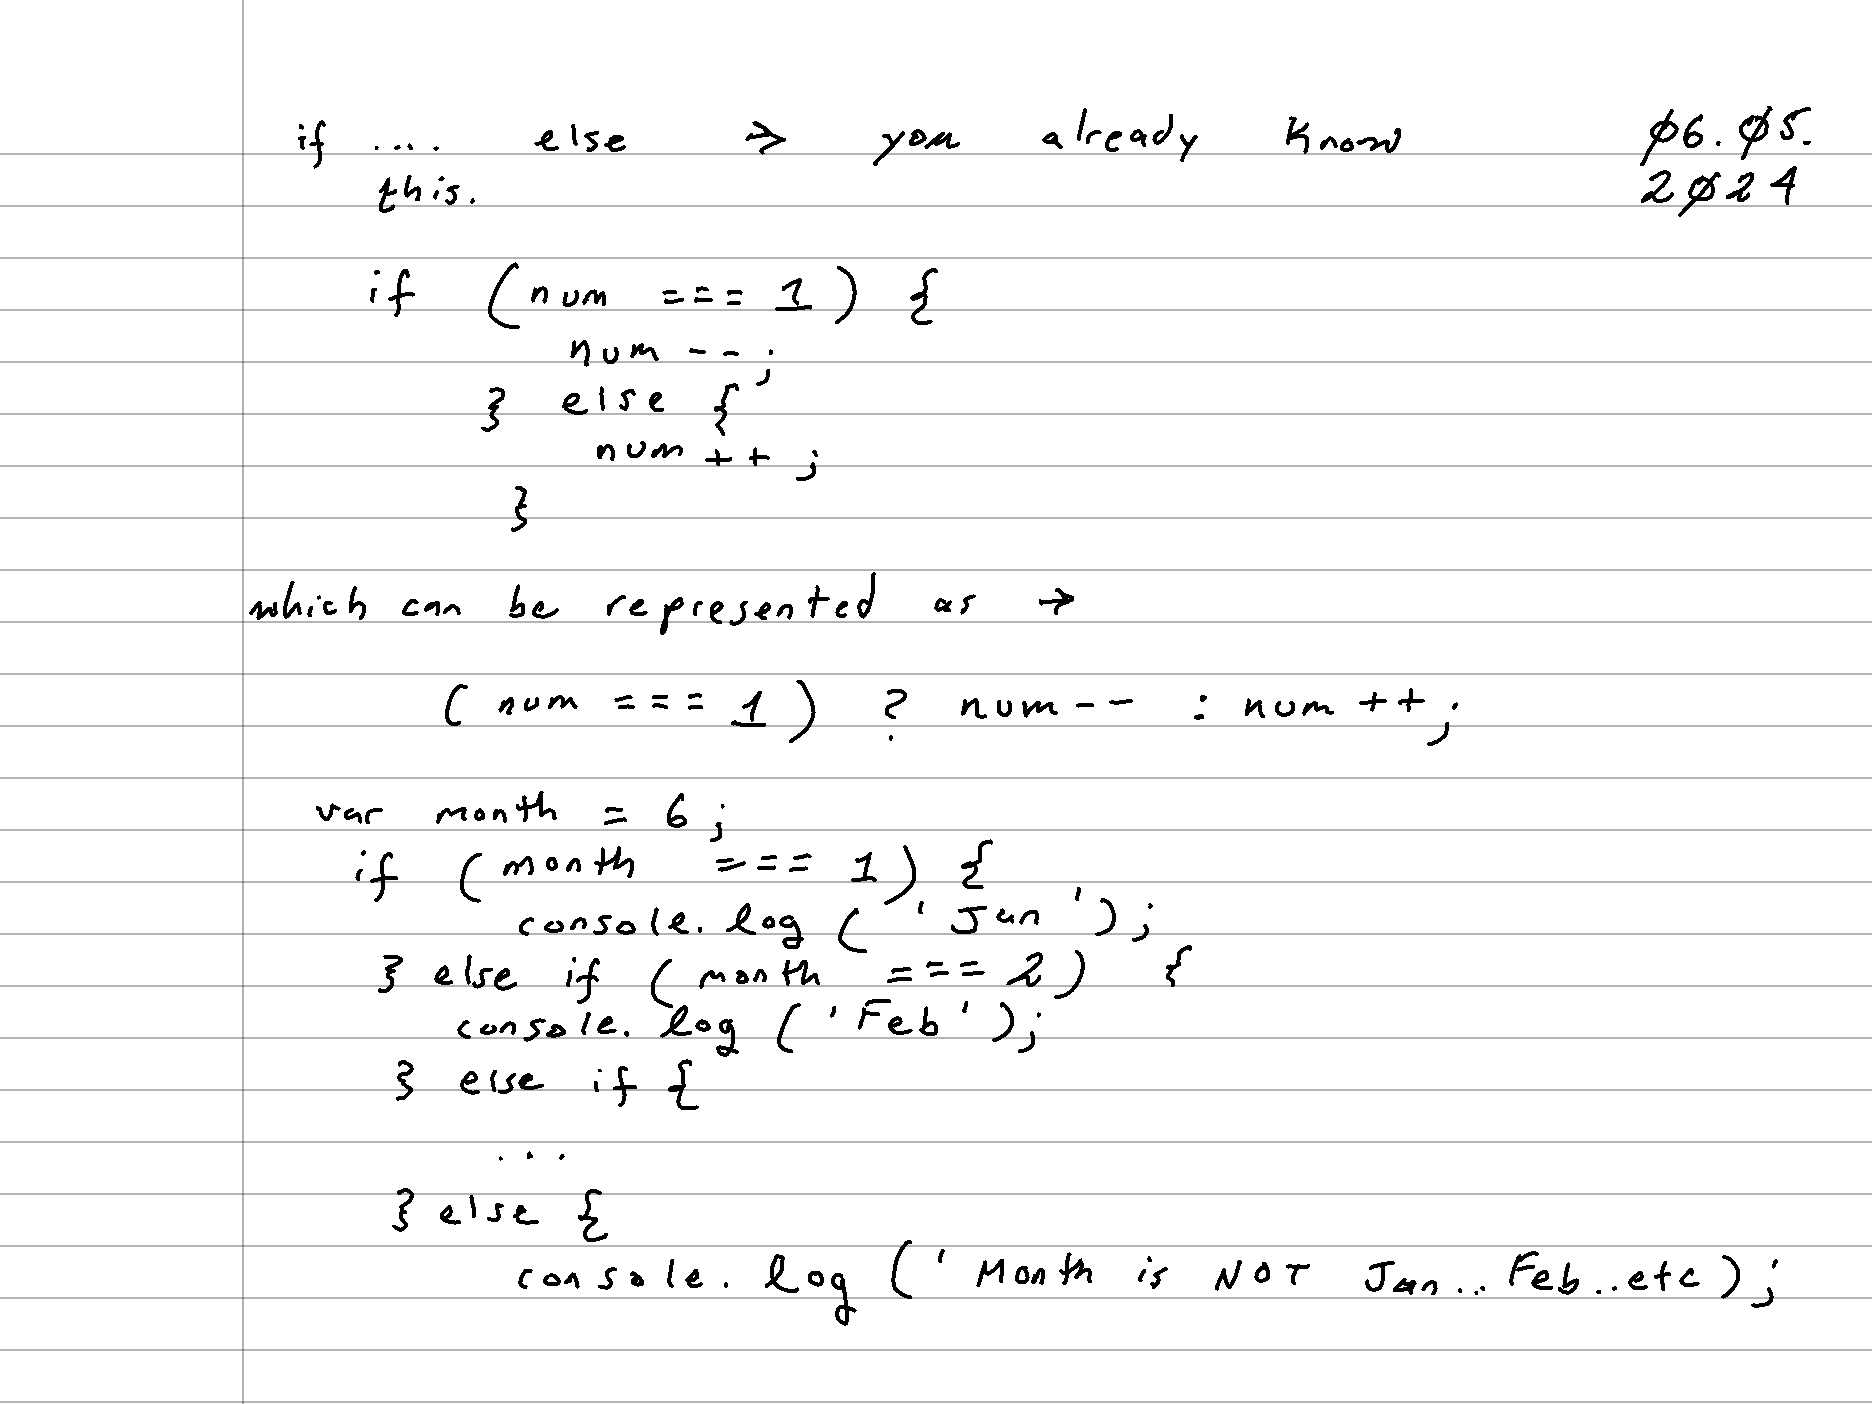 if .... else → you already know
this.
06.05.
2024
if (num === 1) {
num --;
} else {
num ++;
}
which can be represented as →
(num === 1) ? num-- : num ++;
var month = 6;
if (month === 1) {
console.log ('Jan');
} else if (month === 2) {
console.log ('Feb');
} else if {
...
} else {
console.log ('Month is NOT Jan.. Feb..etc);